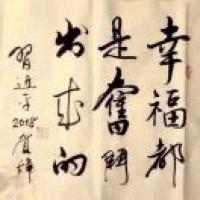 幸福都
是奮鬥
出来的
習近平2018賀辞